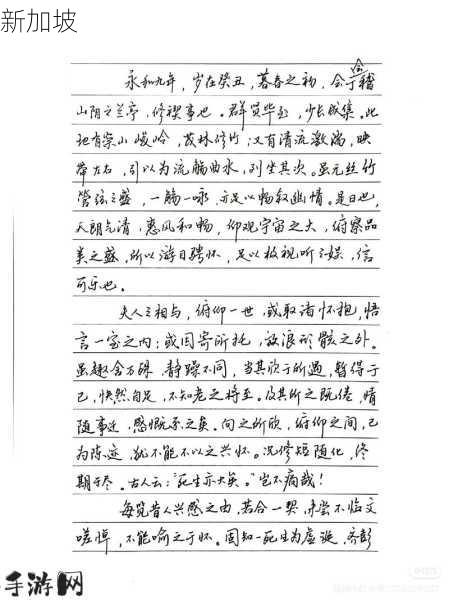 新加坡
永和九年，岁在癸丑，暮春之初，会于稽
会
山阴之兰亭，修禊事也。群贤毕至，少长咸集。此
地有崇山峻岭，茂林修竹；又有清流激湍，映
带左右，引以为流觞曲水，列坐其次。虽无丝竹
管弦之盛，一觞一咏，亦足以畅叙幽情。是日也，
天朗气清，惠风和畅，仰观宇宙之大，俯察品
类之盛，所以游目骋怀，足以极视听之娱，信
可乐也。
夫人之相与，俯仰一世，或取诸怀抱，悟
言一室之内；或因寄所托，放浪形骸之外。
虽趣舍万殊，静躁不同，当其欣于所遇，暂得于
己，快然自足，不知老之将至。及其所之既倦，情
随事迁，感慨系之矣。向之所欣，俯仰之间，已
为陈迹，犹不能不以之兴怀。况修短随化，终
期于尽。古人云：“死生亦大矣。”岂不痛哉！
每览昔人兴感之由，若合一契，未尝不临文
嗟悼，不能喻之于怀。固知一死生为虚诞，齐彭
手游网